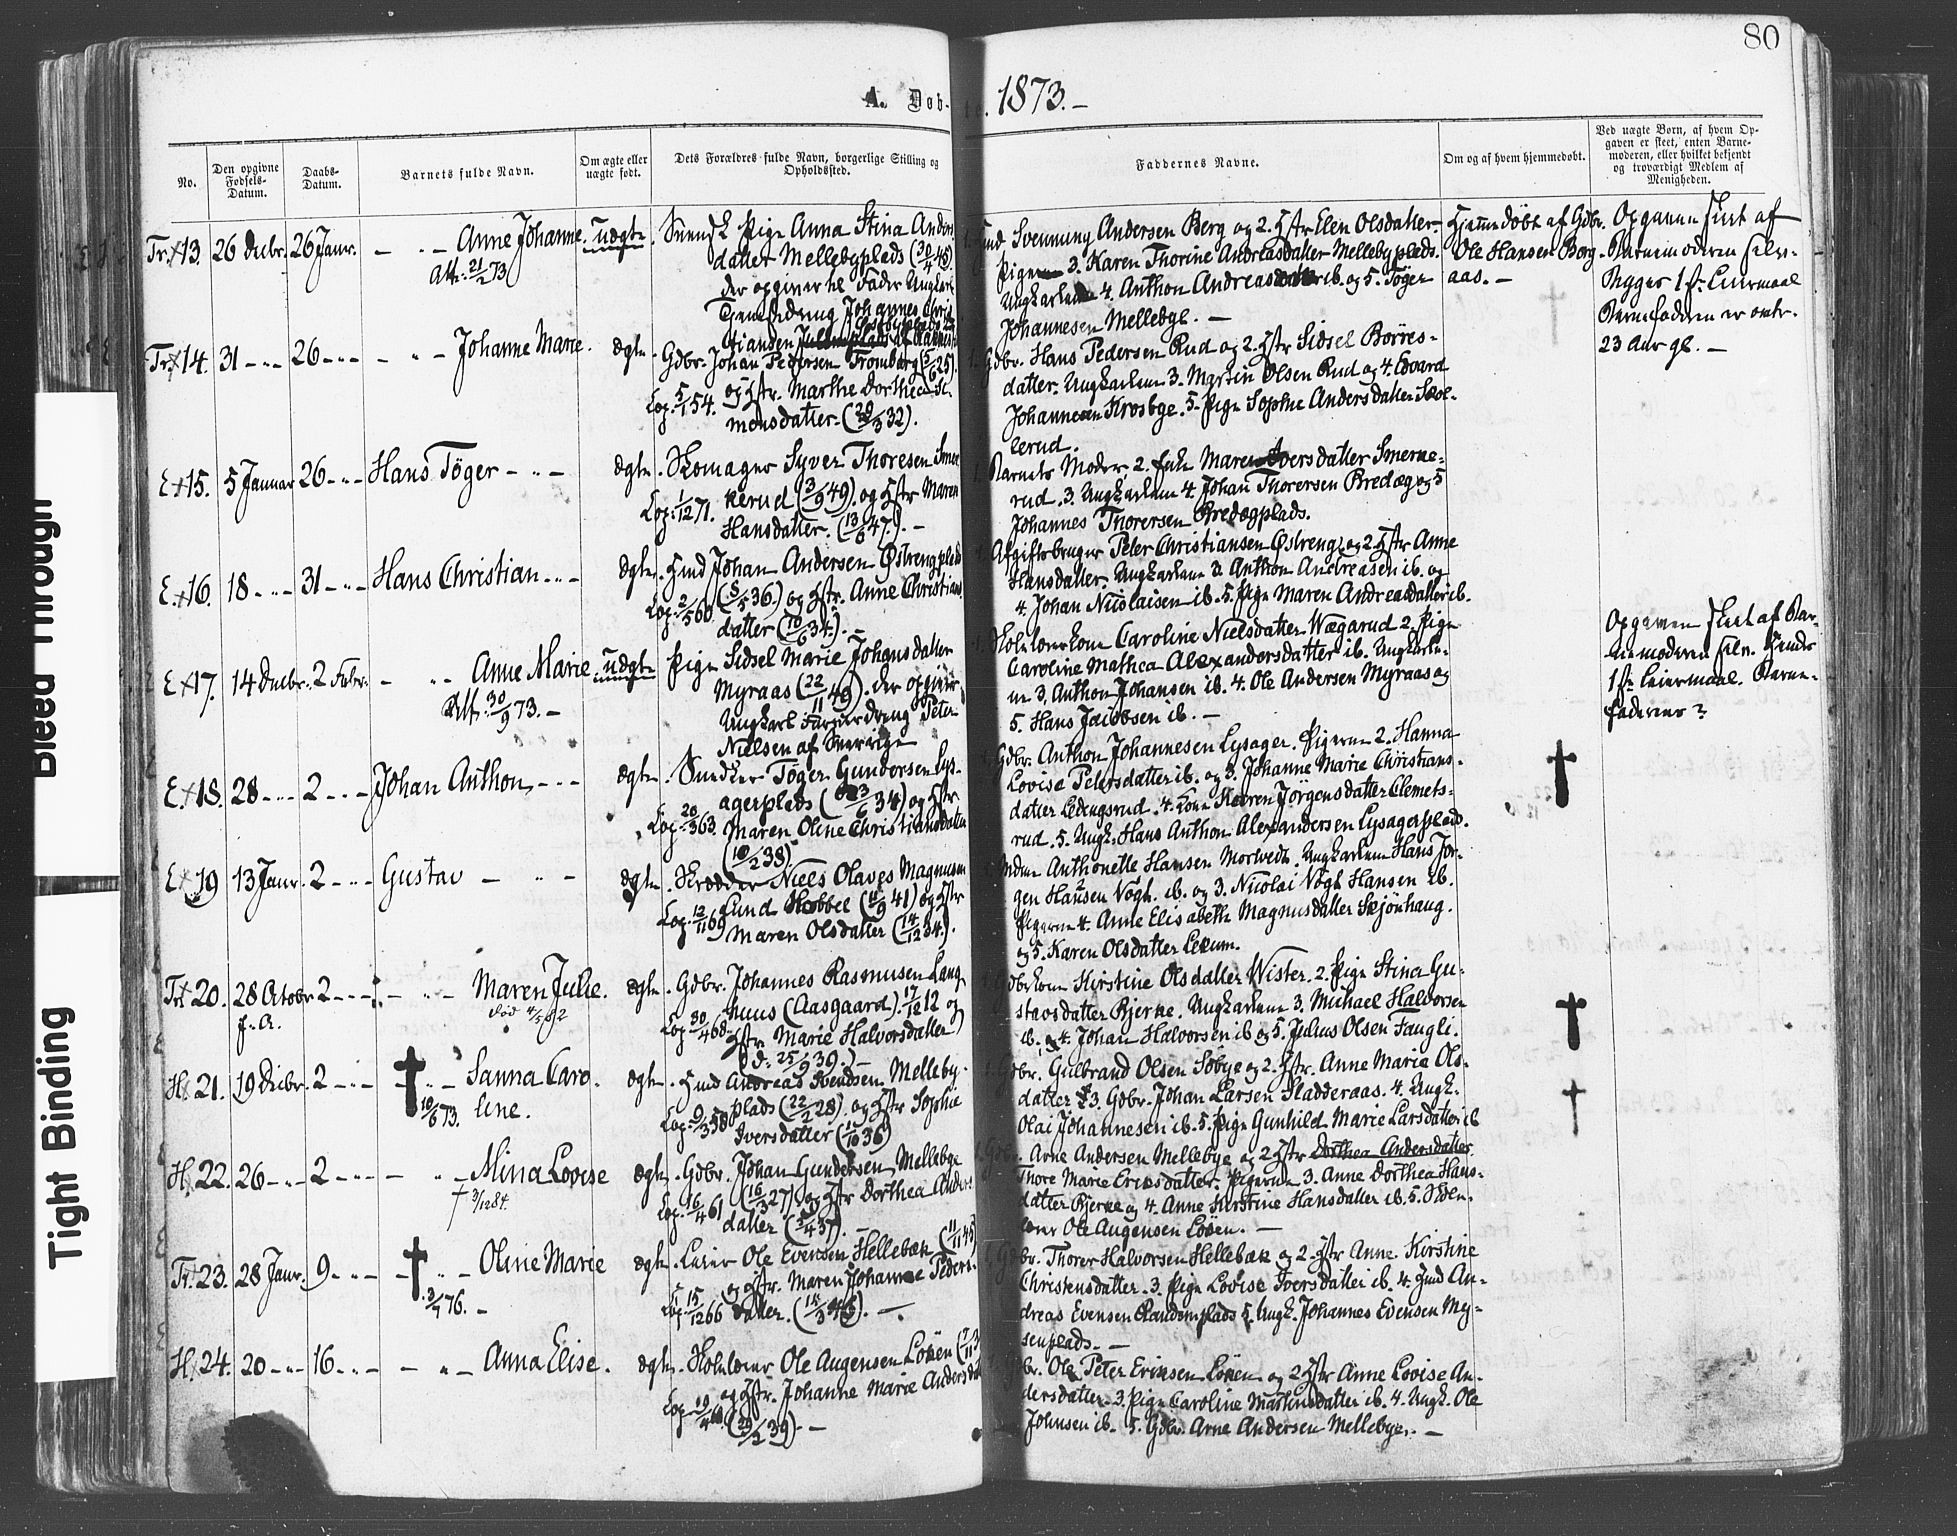 80
A. Døb-te. 1873.-
No.
Den opgivne Fødsels-Datum.
Daabs-Datum.
Barnets fulde Navn.
Om ægte eller uægte født.
Dets Forældres fulde Navn, borgerlige Stilling og Opholdssted.
Faddernes Navne.
Om og af hvem hjemmedøbt.
Ved uægte Børn, af hvem Op-
gaven er skeet, enten Barne-
moderen, eller hvilket bekjendt
og troværdigt Medlem af
Menigheden.
Tr. 13. 26 Decbr. 26 Janr. - " - Anne Johanne. uægte.
Att. 21/2 73
Svensk Pige Anna Stina Anders
datter Mellebyplads (30/4 45)
der opgiver til Fader Ungkarl
Tjenestedreng Johannes Christ
tiansen
Svenning Andersen Berg og 2. Hstr Ellen Olsdatter.
Pigerne 3. Karen Thorine Andreasdatter Mellebyplads.
Ungkarlene 4. Anthon Andreas ib. og 5. Töger
Johannesen Mellebye. -
Hjemmedöbt af Gdbr.
Ole Hansen Borg-
aas. -
Opgaven skeet af
Barnemoderen selv.
Begges 1ste Leiermaal
Barnefaderen er omtr.
23 Aar gl. -
Tr. 14. 31 - " - 26 - " - - " - Johanne Marie. ægte.
Gdbr. Johan Pedersen Tromborg (5/6 25).
Cop. 5/1 54. og Hstr. Marthe Dorthea Si
monsdatter (20/3 32).
Gdbr. Hans Pedersen Rud og 2. Hstr Sidsel Börres-
datter. Ungkarlene 3. Martin Olsen Rud og 4. Edvard
Johannesen Krosbye. 5. Pige Sophie Andersdatter Skol-
lerud.
E. 15. 5 Januar 26 - " - Hans Töger - " - ægte.
Skomager Syver Thoresen Smer
Cop. 1/12 71. kerud (3/9 49). og Hstr Maren
Hansdatter. (13/6 47). -
1. Barnets Moder 2. Enke Maren Iversdatter Smerke-
rud. 3. Ungkarlene 4. Johan Thorersen Bredæg og 5
Johannes Thorersen Bredægplads.
E. 16. 18 - " - 31 - " - Hans Christian - " - ægte.
Hmd Johan Andersen Østrengplads
Cop. 2/5 60 (5/5 36.) og Hstr. Anne Christians
datter (10/6 34.). -
Afgiftsbruger Peter Christiansen Østreng, og 2. Hstr Anne
Hansdatter. Ungkarlene 3. Anthon Andreasen ib. og
4. Johan Nicolaisen ib. 5. Pige Maren Andreasdatter ib.
E. 17. 14 Decbr. 2 Febr. - " - Anne Marie uægte.
Att. 30/9 73. -
Pige Sidsel Marie Johansdatter
Myraas (22/11 49). der opgiver
Ungkarl Farverdreng Peter
Nielsen af Sverrige
1. Skolelærerkone Caroline Nielsdatter Wægarud 2. Pige
Caroline Mathea Alexandersdatter ib. Ungkarle-
ne 3. Anthon Johansen ib. 4. Ole Andersen Myraas og
5. Hans Jacobsen ib. -
Opgaven skeet af Bar-
nemoderen selv. Hendes
1ste Leiermaal. Barne-
faderens ?
E. 18. 28 - " - 2 - " - Johan Anthon - " - ægte.
Snedker Töger Gundersen Lys-
agerplads (3/6 34) og Hstr
Cop. 20/3 63. Maren Oline Christiansdatter
(10/2 38).
Gdbr. Anthon Johannesen Lysager. Pigerne 2. Hanna
Lovise Petersdatter ib. og 3. Johanne Marie Christians-
datter Ledengsrud. 4. Kone Karen Jörgensdatter Clemets-
rud. 5. Ungk. Hans Anthon Alexandersen Lysagerplads.
E. 19 13 Janr. 2 - " - Gustav - " - ægte.
Skrædder Niels Olaves Magnusen
Cop. 12/11 69 Lund Hobbel (11/9 41) og Hstr
Maren Olsdatter (14/12 34.).
Anthonette Hansen Morwedt. Ungkarlene Hans Jör-
gen Hansen Vogh. ib. og 3. Nicolai Vogh Hansen ib.
Pigerne 4. Anne Elisabeth Magnusdatter Skjönhaug.
og 5. Karen Olsdatter Lekum.
Tr. 20. 28 Octobr. f. A. 2 - " - - " - Maren Julie. ægte.
död 4/5 82
Gdbr. Johannes Rasmusen Lang
nuus (Aasgaard). 17/12 12 og
Cop. 30/4 68. Hstr Marie Halvorsdatter
d: 25/9 39.) -
Gdbrkone Kirstine Olsdatter Wister. 2. Pige Stina Gu-
stavsdatter Bjerke. Ungkarlene 3. Michael Halvorsen
ib. og 4. Johan Halvorsen ib og 5. Julius Olsen Faugli.
H. 21. 19 Decbr. 2 - " - - " - Sanna Caro-
line. ægte.
10/6 73.
Hmd Andreas Svendsen Melleby-
plads (22/2 28). og Hstr Sophie
Cop. 9/3 58 Iversdatter (1/10 36)
1. Gdbr. Gulbrand Olsen Söbye og 2. Hstr. Anne Marie Ols-
datter 3. Gdbr. Johan Larsen Sladderaas. 4. Ungk.
Olai Johannesen ib. 5. Pige Gunhild Marie Larsdatter ib
H. 22. 26 - " - 2 - " - - " - Mina Lovise ægte.
† 3/12 84.
Gdbr. Johan Gundersen Mellebye
Cop. 16/4 61 (16/3 27) og Hstr Dorthea Anders
datter (5/4 37).
1. Gdbr. Arne Andersen Mellebye og 2 Hstr Dorthea Andersdatter
Thore Marie Eriksdatter. Pigerne 3. Anne Dorthea Hans-
datter Bjerke og 4. Anne Kirstine Hansdatter ib. 5. Skole-
lærer Ole Augensen Löken. -
Tr. 23. 28 Janr. 9 - " - - " - Oline Marie ægte.
3/7 76. -
Leier Ole Evensen Hellebæk (11/11 45)
og Hstr. Maren Johanne Peders-
Cop. 15/12 66 datter. (14/3 46). -
1. Gdbr. Thorer Halvorsen Hellebæk og 2. Hstr Anne Kirstine
Christensdatter. 3. Pige Lovise Iversdatter ib. 4. Hmd An-
dreas Evensen Randemplads 5. Ungk. Johannes Evensen My-
senplads. -
H. 24. 20 - " - 16 - " - - " - Anna Elise. ægte.
Skolelærer Ole Augensen Löken
og Hstr. Johanne Marie Andersdat
Cop. 19/4 60. (29/2 39). -
Gdbr. Ole Peter Eriksen Löken og 2 Hstr Anne Lovise An-
dersdatter. 3. Pige Caroline Martinsdatter ib. 4. Ungk. Ole
Johnsen ib. 5. Gdbr. Arne Andersen Mellebye. -
Bleed Through
Tight Binding